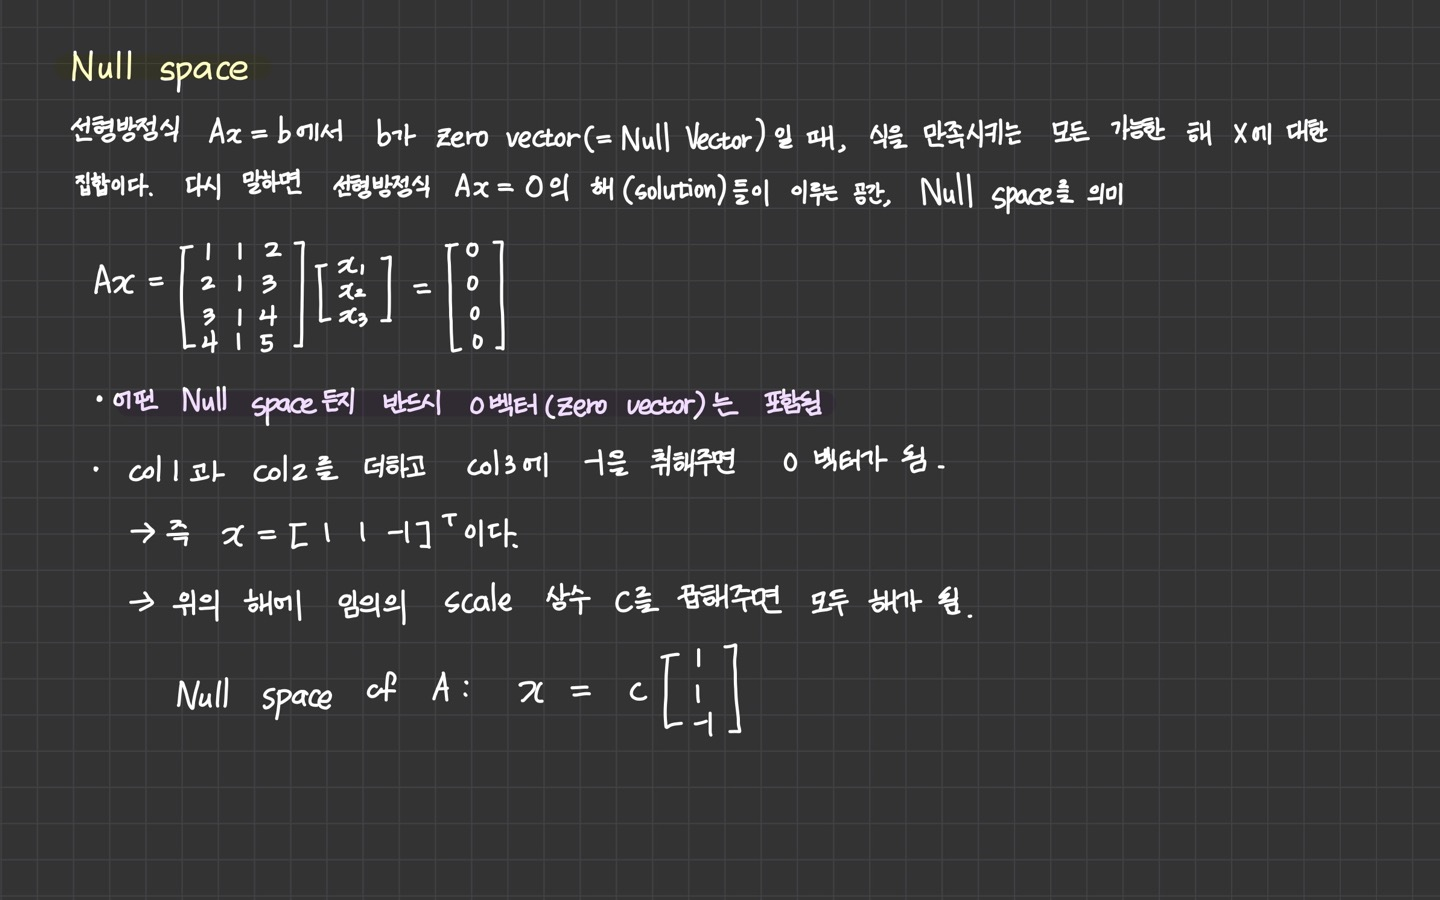 Null space
선형방정식 Ax = b에서 b가 zero vector(= Null Vector)일 때, 식을 만족시키는 모든 가능한 해 X에 대한
집합이다. 다시 말하면 선형방정식 Ax = 0의 해(solution)들이 이루는 공간, Null space를 의미
Ax = [1 1 2; 2 1 3; 3 1 4; 4 1 5] [x₁; x₂; x₃] = [0; 0; 0; 0]
• 어떤 Null space든지 반드시 0벡터(zero vector)는 포함됨
• col1과 col2를 더하고 col3에 -1을 취해주면 0 벡터가 됨.
→ 즉 x = [1 1 -1]ᵀ이다.
→ 위의 해에 임의의 scale 상수 c를 곱해주면 모두 해가 됨.
Null space of A: x = c [1; 1; -1]